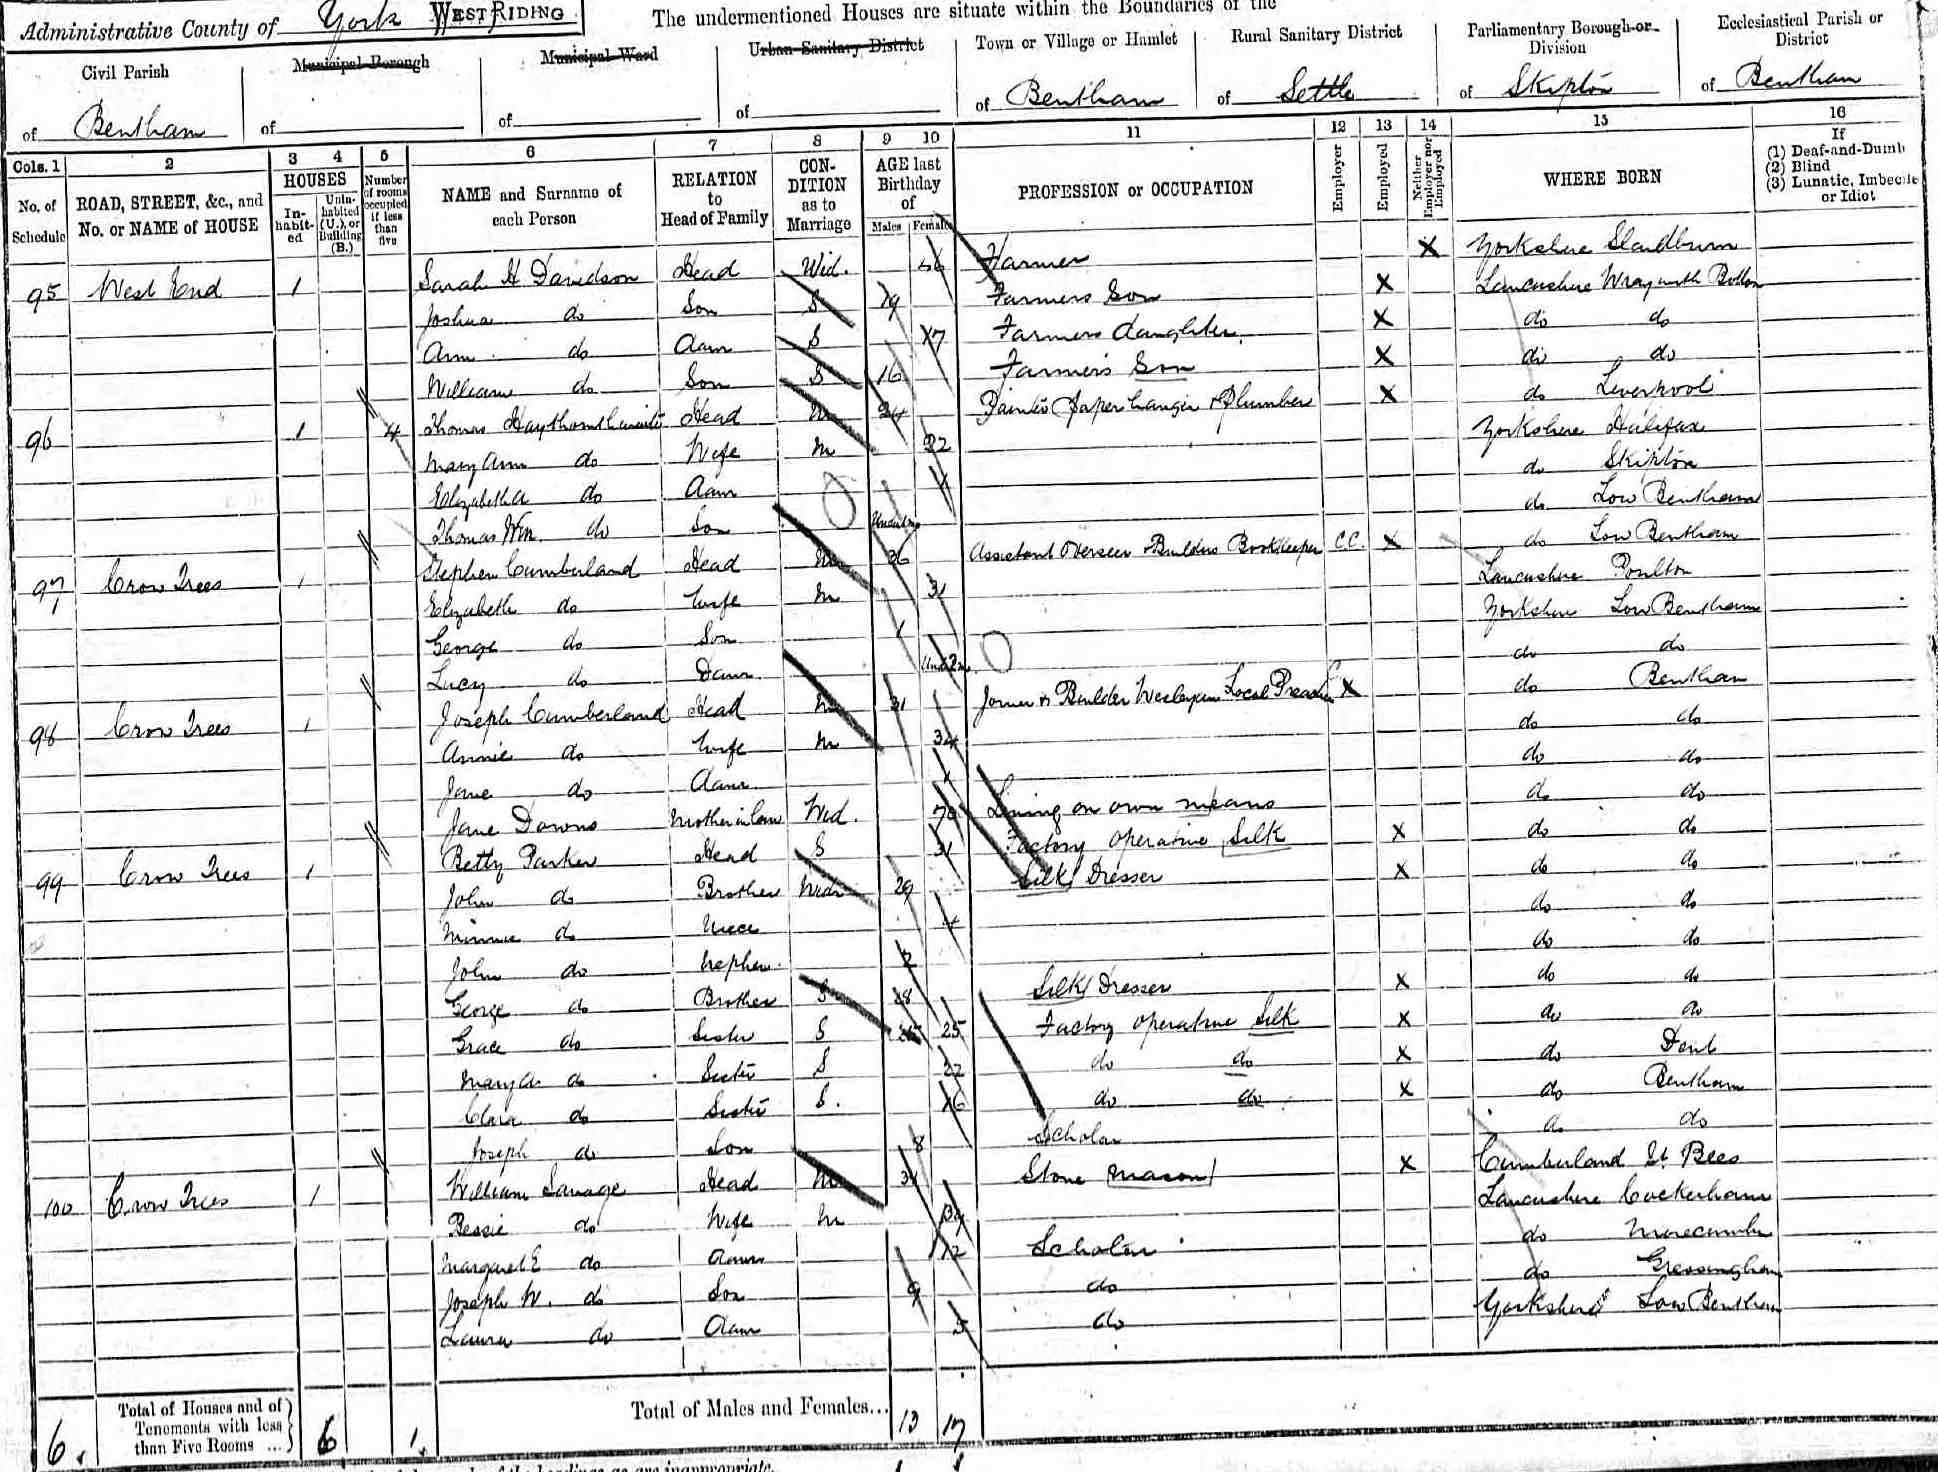 Administrative County of York WEST RIDING
The undermentioned Houses are situate within the Boundaries of the
Civil Parish of Bentham
Municipal Borough of
Municipal Ward of
Urban Sanitary District of
Town or Village or Hamlet of Bentham
Rural Sanitary District of Settle
Parliamentary Borough or Division of Skipton
Ecclesiastical Parish or District of Bentham
Cols. 1 2 3 4 5 6 7 8 9 10 11 12 13 14 15 16
No. of Schedule
ROAD, STREET, &c., and No. or NAME of HOUSE
HOUSES
In-habit-ed
Unin-habited (U.), or Building (B.)
Number of rooms occupied if less than five
NAME and Surname of each Person
RELATION to Head of Family
CON-DITION as to Marriage
AGE last Birthday of
Males Females
PROFESSION or OCCUPATION
Employer
Employed
Neither Employer nor Employed
WHERE BORN
If
(1) Deaf-and-Dumb
(2) Blind
(3) Lunatic, Imbecile or Idiot
95 West End 1 Sarah H Davidson Head Wid. Farmer X Yorkshire Slaidburn
Joshua do Son S 19 Farmers Son X Lancashire Wray with Botton
Ann do Daur S 17 Farmers daughter. X do do
William do Son S 16 Farmer's Son X do do
96 1 4 Thomas Haythornthwaite Head M 24 Painter Paper hanger & Plumber X do Liverpool
Mary Ann do Wife M 22 Yorkshire Halifax
Elizabeth A do Daur 1 do Skipton
Thomas Wm. do Son do Low Bentham
97 Crow Trees 1 Stephen Cumberland Head M 36 Assistant Overseer & Builders Bookkeeper C.C. X do Low Bentham
Elizabeth do Wife M 31 Lancashire Poulton
George do Son 1 Yorkshire Low Bentham
Lucy do Daur do do
98 Crow Trees 1 Joseph Cumberland Head M 31 Joiner & Builder Wesleyan Local Preacher X do Bentham
Annie do Wife M 34 do do
Jane do Daur 1 do do
Jane Downs Mother in law Wid. 70 Living on own means do do
99 Crow Trees 1 Betty Parker Head S 31 Factory operative Silk X do do
John do Brother Widr 29 Silk Dresser X do do
Minnie do Niece 4 do do
John do Nephew 2 do do
George do Brother S 28 Silk Dresser X do do
Grace do Sister S 25 Factory operative Silk X do do
Mary A do Sister S 22 do do X do Dent
Clara do Sister S. 16 do do X do Bentham
Joseph do Son 8 Scholar do do
100 Crow Trees 1 William Savage Head M Stone Mason X Cumberland St Bees
Bessie do Wife M Lancashire Cockerham
Margaret E do Daur 12 Scholar do Morecambe
Joseph W. do Son 9 do do Gressingham
Laura do Daur 5 do Yorkshire Low Bentham
6. Total of Houses and of Tenements with less than Five Rooms ... 6 1
Total of Males and Females... 13 17
of the headings as are inappropriate.